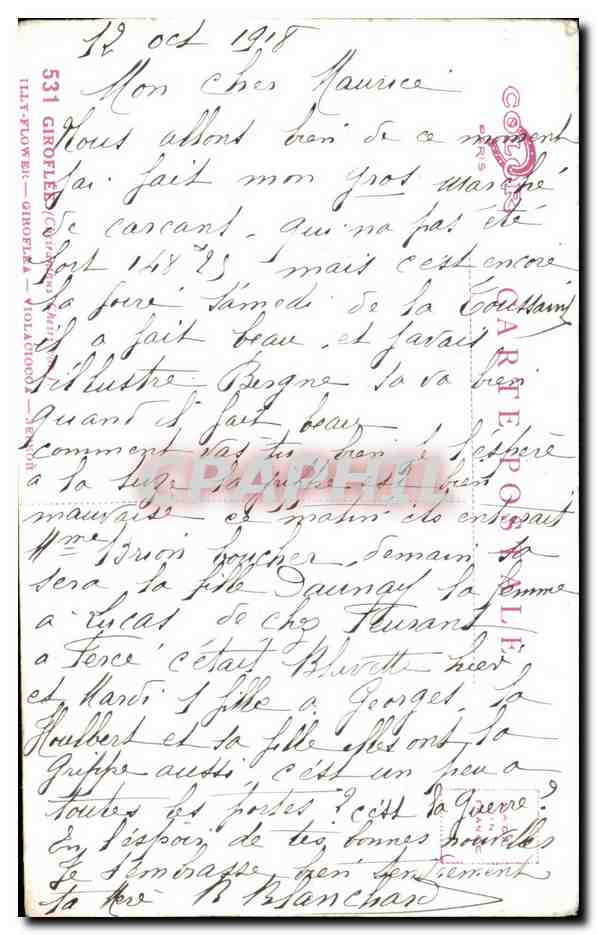 12 oct 1918
Mon cher Maurice
Nous allons bien de ce moment
jai fait mon gros marché
de carcant, qui na pas été
fort 148 25 mais c'est encore
la foire Samedi de la Toussaint
il a fait beau, et javais
l'illustre Bergne sa va bien
quand il fait beau
comment vas tu bien je l'espère
a la Suze la grippe est bien
mauvaise ce matin ils enterrait
Mme Brion boucher, demain sa
sera la fille Daunay la femme
a Lucas de chez Fleurant
a Fercé c'était Bluvette hier
et Mardi 1 fille a Georges, la
Houlbert et sa fille elles ont la
Grippe aussi, c'est un peu a
toutes les portes? c'est la Guerre?
En l'espoir de tes bonnes nouvelles
Je t'embrasse bien tendrement
ta Mère B Blanchard
531 GIROFLÉE
ILLY-FLOWER — GIROFLÉA — VIOLACIOCCA —
COLOR
PARIS
CARTE POSTALE
CPAPHIL